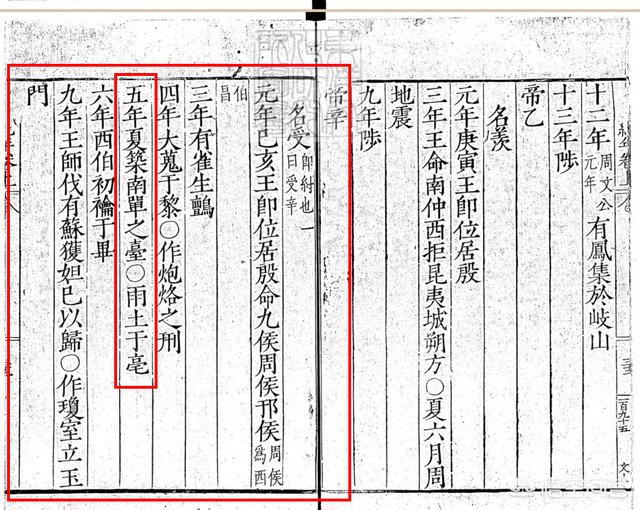 十二年周文公元年有鳳集於岐山
十三年陟
帝乙
名羨
元年庚寅王即位居殷
三年王命南仲西拒昆夷城朔方〇夏六月周
地震
九年陟
帝辛
名受即紂也一曰受辛
元年己亥王即位居殷命九侯周侯邘侯周侯為西
伯昌
三年有雀生鸇
四年大蒐于黎〇作炮烙之刑
五年夏築南單之臺〇雨土于亳
六年西伯初禴于畢
九年王師伐有蘇獲妲己以歸〇作瓊室立玉
門